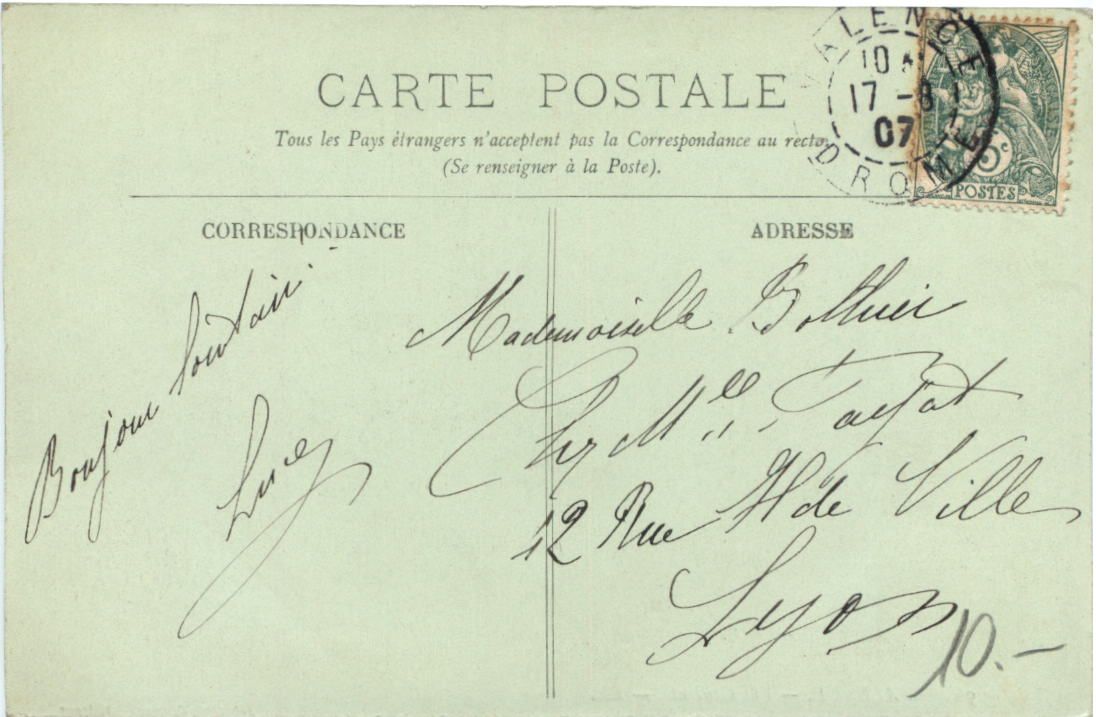 CARTE POSTALE
Tous les Pays étrangers n'acceptent pas la Correspondance au recto.
(Se renseigner à la Poste).
VALENCE
10
17 -8
07
DROME
5c
POSTES
CORRESPONDANCE
Bonjour lointain.
Lucy
ADRESSE
Mademoiselle Bolthier
Chez Mlle
12 Rue H de Ville
Lyon
10.-